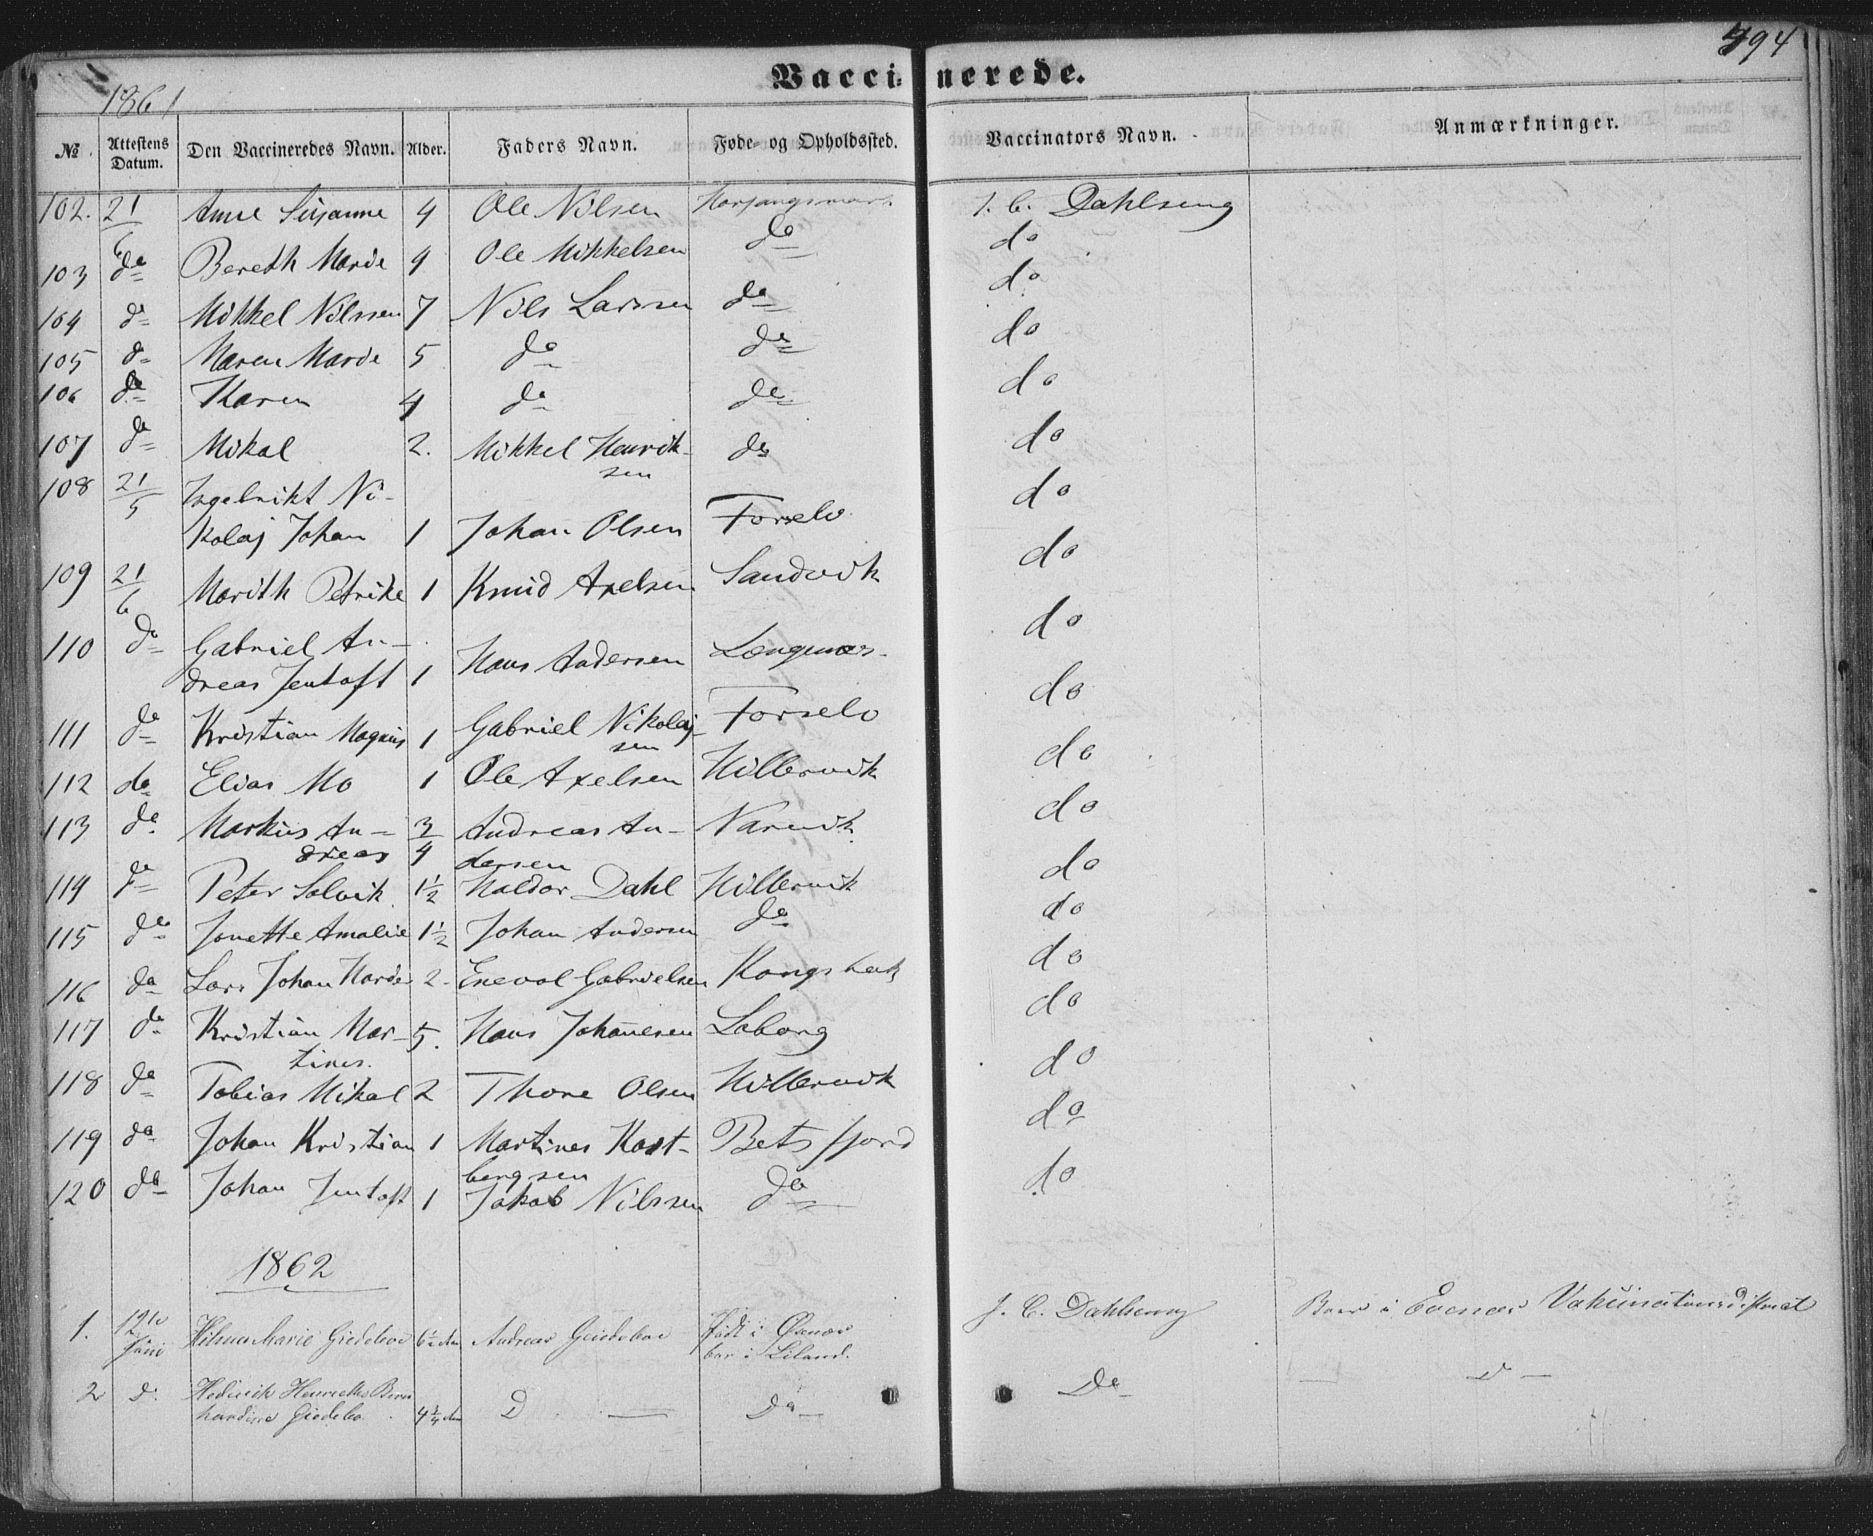 494
1861
Vaccinerede.
№ Attestens Datum. Den Vaccineredes Navn. Alder. Faders Navn. Føde- og Opholdssted. Vaccinators Navn. Anmærkninger.
102. 21/6 Anne Susanne 4 Ole Nilsen J. C. Dahlseng
103 do Bereth Marie 9 Ole Mikkelsen do do
104 do Mikkel Nilssen 7 Nils Larssen do do
105 do Maren Marie 5 do do do
106 do Karen 4 do do do
107 do Mikal 2. Mikkel Henrik-
sen do do
108 21/5 Ingebrikt Ni-
kolaj Johan 1 Johan Olsen Forselv do
109 21/6 Marith Petrike 1 Knud Axelsen Sandvik do
110 do Gabriel An-
dreas Jentoft 1 Hans Andersen Lengenæs do
111 do Kristian Magnus 1 Gabriel Nikolaj-
sen Forselv do
112 do Elias Mo 1 Ole Axelsen Hillervik do
113 do Markus An-
dreas 3/4 Andreas An-
dersen Narvik do
114 do Peter Solvik 1½ Haldor Dahl Hillervik do
115 do Jonette Amalie 1½ Johan Andersen do do
116 do Lars Johan 2 Enevol Gabrielsen Kongsbak do
117 do Kristian Mar-
tines. 5. Hans Johannesen Laberg do
118 do Tobias Mikal 2 Thore Olsen Hillervik do
119 do Johan Kristian 1 Martines Kast-
bergsen Betsfjord do
120 do Johan Jentoft 1 Jakob Nilssen do do
1862
1. 12 Juni Hilma Marie Giedeboe Andreas Geideboe Født i
bor i Liland. J. C. Dahlseng Boer i Evenæs Vakcinationsdistrict
2 D. Hedevik Henriette Bern
hardine Giedebo 4¾ D — Do — Do — — D —